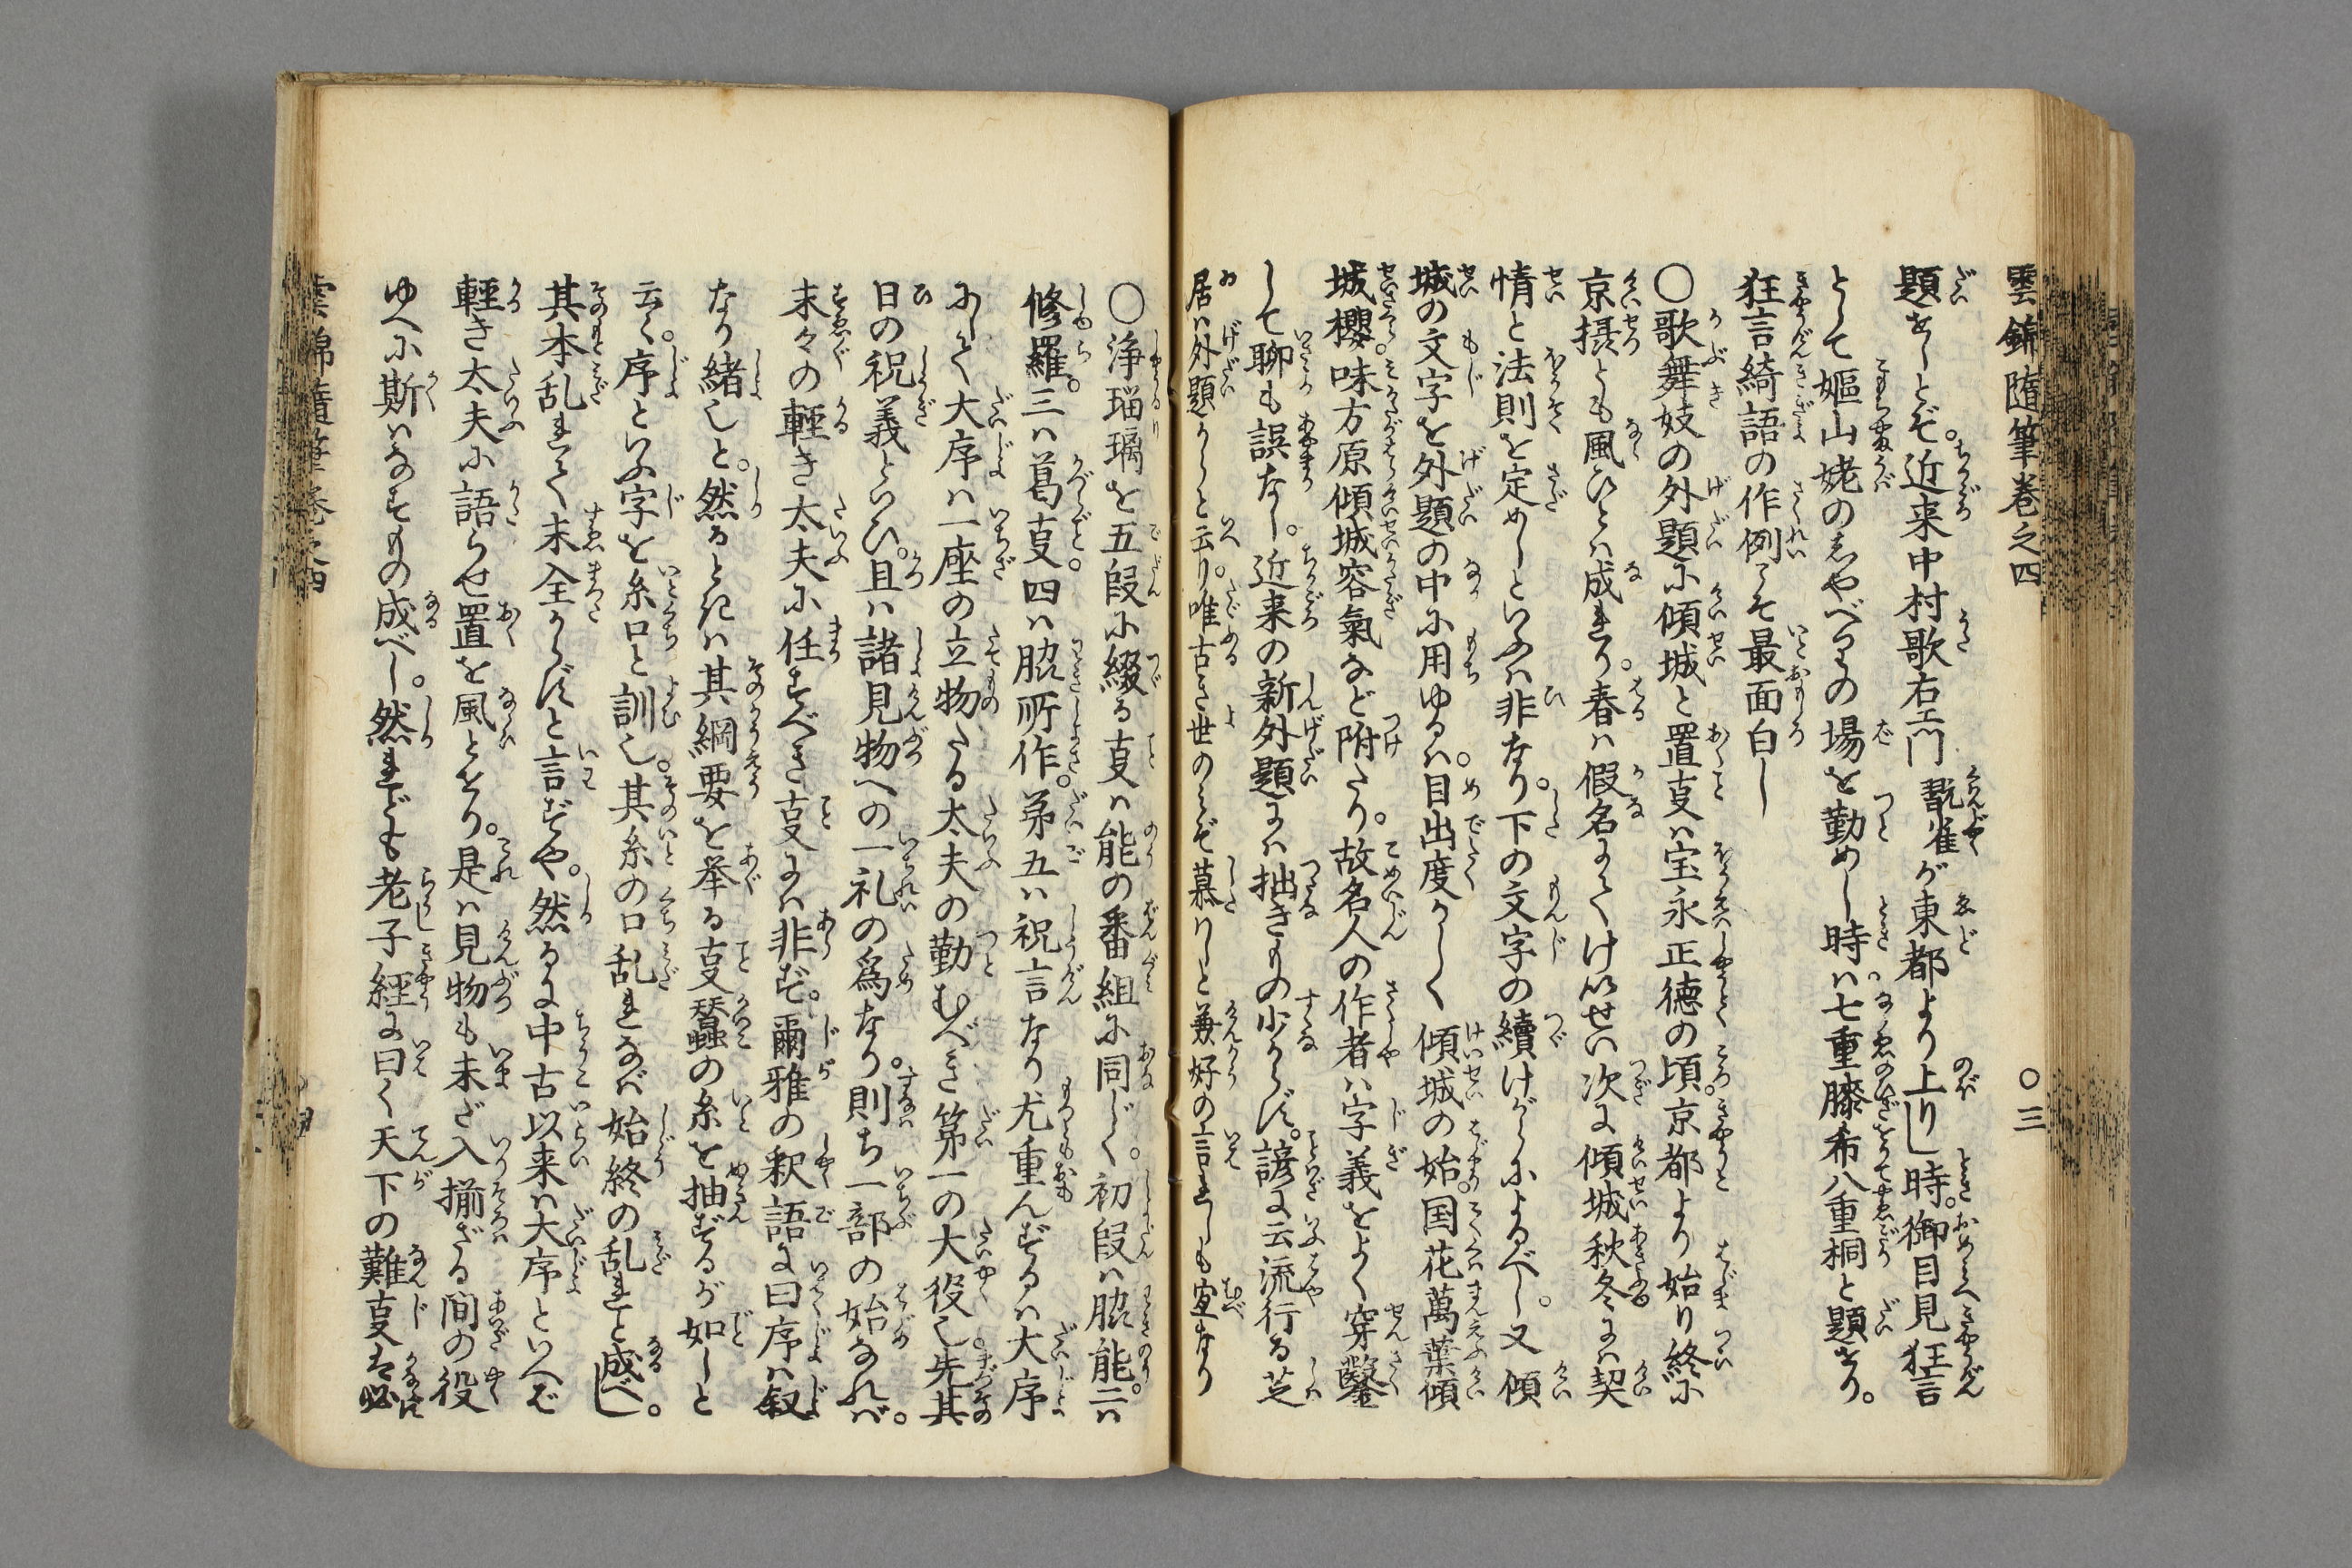 雲錦随筆巻之四
〇三
題をしとぞ。近来中村歌右エ門翫雀が東都より上りし時。御目見狂言
として嫗山姥のしやべりの場を勤めし時は七重膝希八重桐と題せり。
狂言綺語の作例こそ最面白し
〇歌舞妓の外題に傾城と置叓は宝永正徳の頃。京都より始り終に
京摂とも風ひとは成れり。春は假名にてけいせい次に傾城秋冬には契
情と法則を定めしといふは非なり。下の文字の續けがらによるべし。又傾
城の文字を外題の中に用ゆるは。目出度かしく傾城の始。国花萬葉傾
城櫻。味方原傾城容氣など附たり。故名人の作者は字義をよく穿鑿
して聊も誤なし。近来の新外題には拙きもの少からず。諺に云流行る芝
居は外題からと云り。唯古き世のみぞ慕はしと兼好の言れしも宜なり
〇浄瑠璃を五段に綴る叓は能の番組に同じく。初段は脇能。二は
修羅。三は葛叓。四は脇所作。第五は祝言なり尤重んずるは大序
にして大序は一座の立物たる太夫の勤むべき第一の大役也。先其
日の祝義といひ。且は諸見物への一礼の為なり。則ち一部の始なれば。
末々の軽き太夫に任すべき叓には非ず。爾雅の釈語に曰序は叙
なり緒也と。然るときは其綱要を挙る叓蠶の糸を抽ずるが如しと
云々。序といふ字を糸口と訓也。其糸の口乱れなば始終の乱れと成べし。
其本乱れて末全からずと言ずや。然るに中古以来は大序といへど
軽き太夫に語らせ置を風とせり。是は見物も未ざ入揃ざる間の役
ゆへに斯はなすもの成べし。然れども老子経に曰く天下の難叓は必
雲錦随筆巻之四